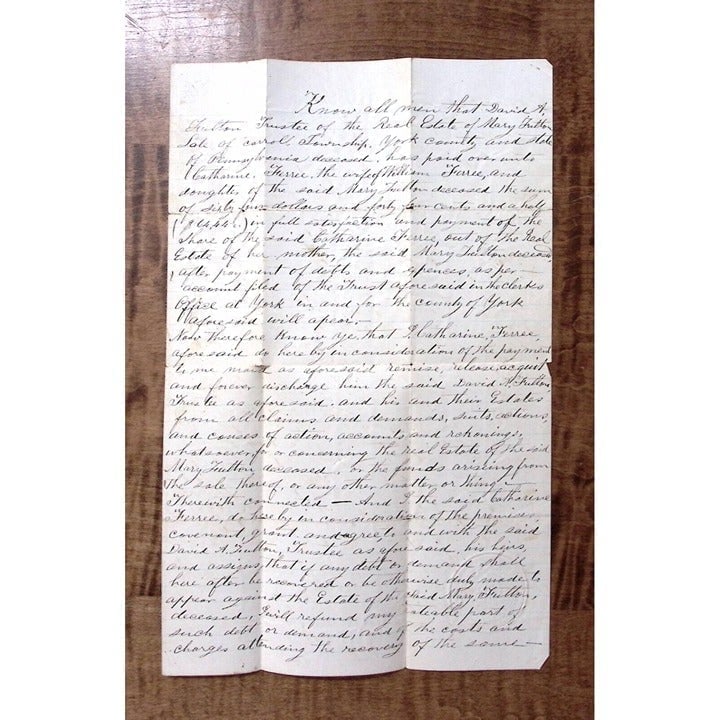 Know all men that David A.
Fulton Trustee of the Real Estate of Mary Fulton
late of carroll Township York county and state
of Pennsylvania deceased, has paid over unto
Catharine Ferree, the wife of William Ferree, and
daughter of the said Mary Fulton deceased the sum
of sixty four dollars and forty four cents and a half
($ 64,44 ½) in full satisfaction and payment of the
Share of the said Catharine Ferree, out of the Real
Estate of her mother, the said Mary Fulton deceased,
after payment of debts and expences, as per
account filed of the Trust afore said in the clerks
Office at York in and for the county of York
afore said will apear.—
Now therefore Know ye, that I, Catharine, Ferree,
afore said do here by in consideration of the payment
to me made as aforesaid remise, release, acquit
and forever discharge him the said David A. Fulton,
Trustee as afore said, and his and their Estates
from all claims and demands, suits, actions
and causes of action, accounts and reckonings,
whatsoever, for or concerning the real Estate of the said
Mary Fulton deceased, or the funds arising from
the sale thereof, or any other matter or thing—
Therewith connected — And I the said Catharine
Ferree, do here by in consideration of the premises
covenant, grant and agree, to and with the said
David A. Fulton, Trustee as afore said, his heirs,
and assigns, that if any debt or demand shall
here after be recovered or be otherwise duly made to
appear against the Estate of the said Mary Fulton,
deceased, I will refund my rateable part of
such debt or demand, and of the costs and
charges attending the recovery of the same—